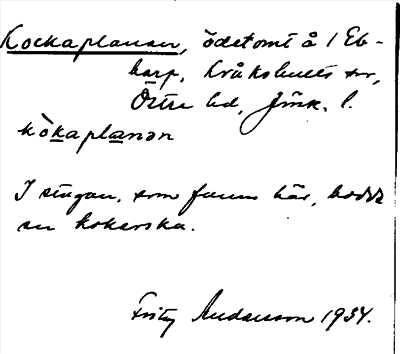 Kockaplanan, ödetomt å 1 Eb-
harp, Kråkshults sn,
Östra hd, Jönk. l.
kòkaplanən
I stugan, som fanns här, bodde
en kokerska.
Fritz Andersson 1934.